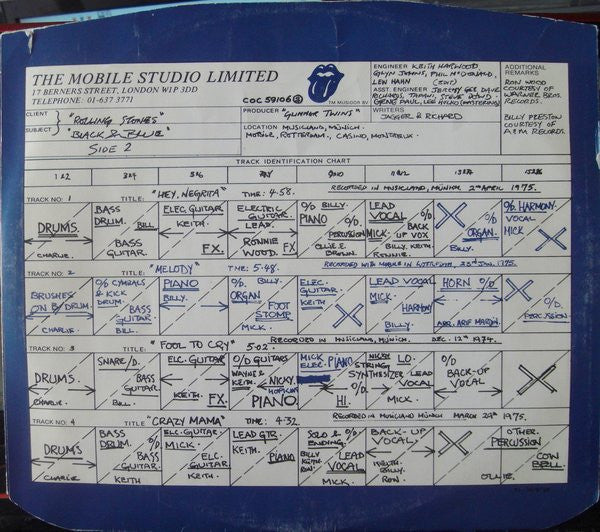 THE MOBILE STUDIO LIMITED
17 BERNERS STREET, LONDON W1P 3DD
TELEPHONE: 01-637 3771
COC 59106 2
TM MUSIDOR BV
ENGINEER KEITH HARWOOD,
GLYN JOHNS, PHIL McDONALD,
LEW HAHN (EDIT)
ASST. ENGINEER JEREMY GEE, DAVE
RICHARDS, TAPANI, STEVE DOWD
GENE PAUL, LEE HULKO (MASTERING)
WRITERS
JAGGER & RICHARD
ADDITIONAL
REMARKS
RON WOOD
COURTESY OF
WARNER BROS.
RECORDS.
BILLY PRESTON
COURTESY OF
A&M RECORDS.
CLIENT "ROLLING STONES"
SUBJECT "BLACK & BLUE"
SIDE 2
PRODUCER "GLIMMER TWINS"
LOCATION MUSICLAND, MUNICH.
MOBILE, ROTTERDAM., CASINO, MONTREUX.
TRACK IDENTIFICATION CHART
1&2 3&4 5&6 7&8 9&10 11&12 13&14 15&16
TRACK NO: 1 TITLE: "HEY, NEGRITA" TIME: 4-58. RECORDED IN MUSICLAND, MUNICH 2nd APRIL 1975.
DRUMS. CHARLIE.
BASS DRUM. BILL. BASS GUITAR.
ELEC. GUITAR KEITH. FX.
ELECTRIC GUITAR. LEAD. RONNIE WOOD. FX
O/D BILLY. PIANO PERCUSSION OLLIE E. BROWN.
LEAD VOCAL MICK. O/D BACK UP VOX BILLY. KEITH. RONNIE.
O/D ORGAN. BILLY.
O/D. HARMONY. VOCAL MICK
TRACK NO: 2 TITLE: "MELODY" TIME: 5.48. RECORDED WITH MOBILE IN ROTTERDAM, 23rd JAN. 1975.
BRUSHES ON B/DRUM CHARLIE
O/D CYMBALS & KICK DRUM. BASS GUITAR. BILL.
PIANO BILLY.
O/D. BILLY. ORGAN FOOT STOMP MICK.
ELEC. GUITAR KEITH
LEAD VOCAL MICK. HARMONY BILLY.
HORN O/D ARR. ARIF MARDIN.
O/D. PERCUSSION.
TRACK NO: 3 TITLE: "FOOL TO CRY" 5-02. RECORDED IN MUSICLAND, MUNICH. DEC. 12th 1974.
DRUMS. CHARLIE.
SNARE/D. BASS GUITAR BILL.
ELC. GUITAR KEITH. FX.
O/D GUITARS WAYNE & KEITH. NICKY HOPKINS PIANO
MICK ELEC. PIANO HI.
NICKY LO. STRING SYNTHESIZER LEAD VOCAL MICK.
O/D BACK-UP VOCAL
TRACK NO: 4 TITLE: "CRAZY MAMA" TIME: 4-32. RECORDED IN MUSICLAND MUNICH MARCH 29th 1975.
DRUMS CHARLIE
BASS DRUM. O/D. BASS GUITAR. KEITH
ELC. GUITAR. MICK. ELC. GUITAR KEITH.
LEAD GTR. KEITH. PIANO
SOLO & O/D ENDING. BILLY KEITH RON. LEAD VOCAL MICK.
BACK-UP VOCAL. KEITH. BILLY. RON.
OTHER. PERCUSSION COW BELL. OLLIE.